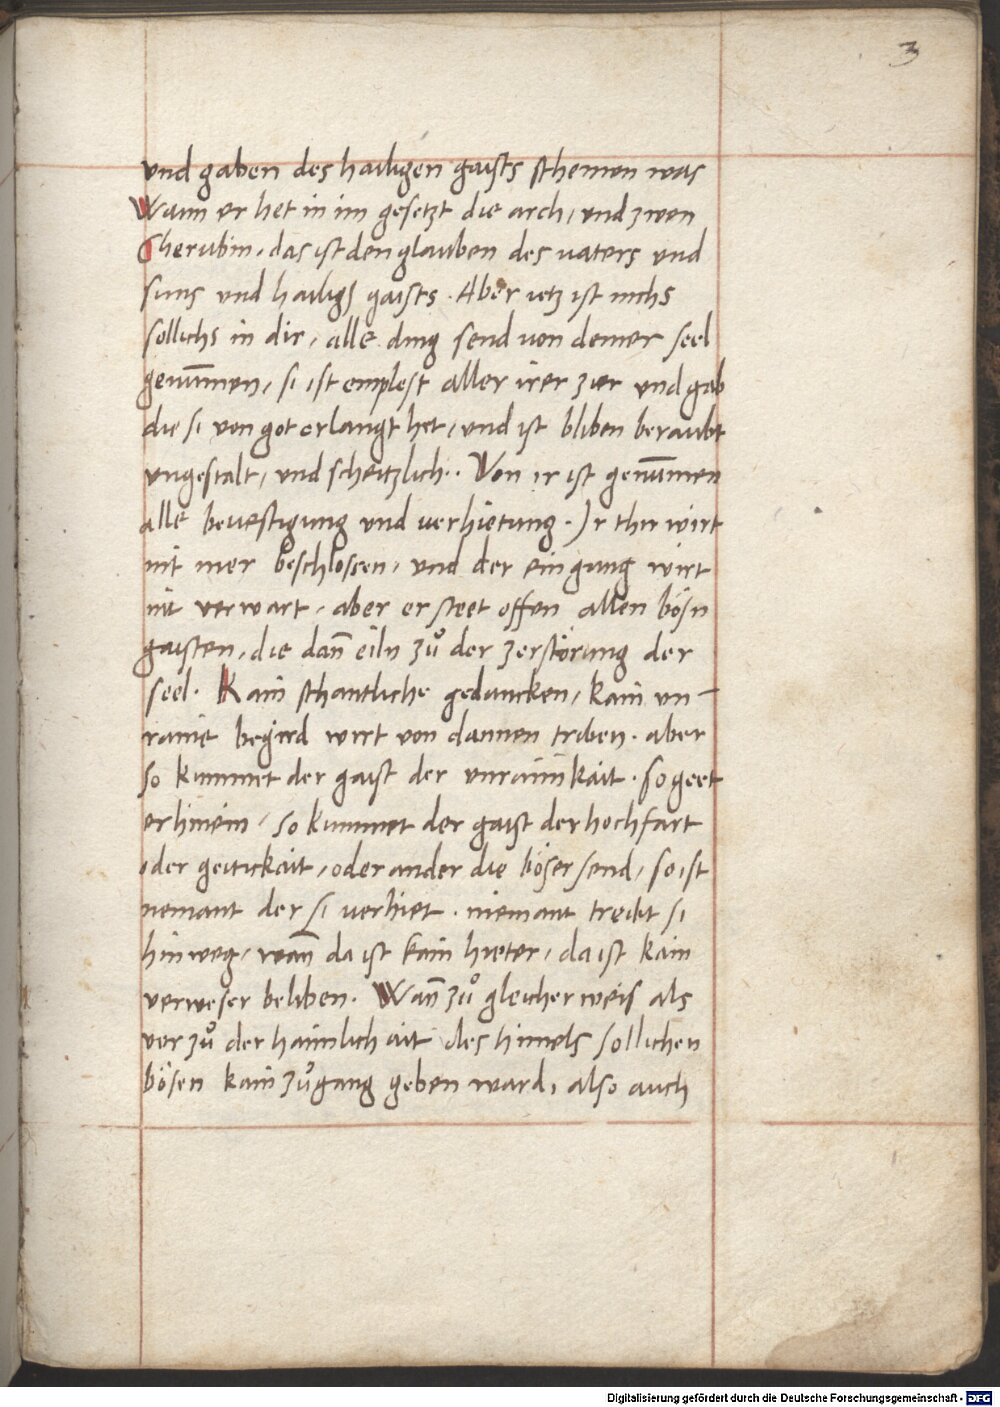 3
und gaben des hailigen gaists schemen was
Wann er het in im gesetzt die arch, und zwen
Cherubin. das ist den glauben des uaters und
suns und hailigs gaists. Aber ietz ist nichs
sollichs in dir, alle ding send von deiner seel
genummen, si ist emplest aller irer zier und gab
die si von got erlangt het, und ist bliben beraubt
ungestalt, und scheitzlich. Von ir ist genummen
alle beuestigung und uerhietung. Ir thir wirt
nit mer beschlossen, und der eingung wirt
nit verwart, aber er steet offen allen bösn
gaisten, die dañ eiln zů der zerstörung der
seel. Kain schantliche gedancken, kain un-
raine begird wirt von dannen triben. aber
so kummet der gaist der unrainikait. so geet
er hinein, so kummet der gaist der hochfart
oder geitickait, oder ander die böser send, so ist
nemant der si verhiet. niemant treibt si
hinweg, wañ da ist kain hieter, da ist kain
verweser beliben. Wañ zů gleicher weis als
vor zů der haimlichait des himels sollichen
bösen kain zůgang geben ward, also auch
Digitalisierung gefördert durch die Deutsche Forschungsgemeinschaft - DFG